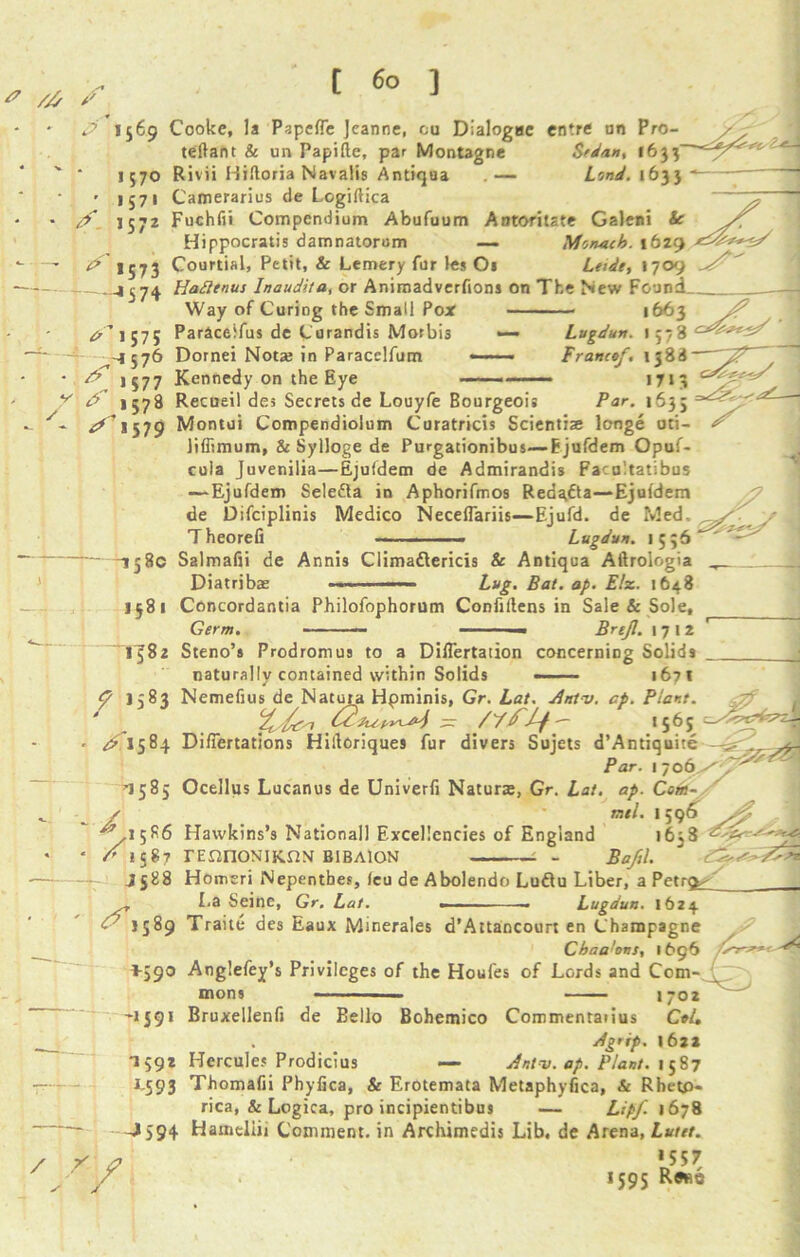 [ 60 ]
1569 Cooke, la Papeſſe Jeanne, ou Dialogue entre un Pro-
teſtant & un Papiſte, par Montagne Sedan, 1633
1570 Rivii Hiſtoria Navalis Antiqua — Lond. 1633
1571 Camerarius de Logiſtica
1572 Fuchſii Compendium Abuſuum Autoritate Galeni &
Hippocratis damnatorum — Monach. 1629
1573 Courtial, Petit, & Lemery ſur les Os Leide, 1709
1574 Hactenus Inaudita, or Animadverſions on The New Found
Way of Curing the Small Pox —— 1663
1575 Paracelſus de Curandis Morbis — Lugdun. 1578
1576 Dornei Notæ in Paracelſum —— Francof. 1588
1577 Kennedy on the Eye —— 1713
1578 Recueil des Secrets de Louyſe Bourgeois Par. 1635
1579 Montui Compendiolum Curatricis Scientiæ longé uti-
liſſimum, & Sylloge de Purgationibus—Ejuſdem Opuſ-
cula Juvenilia—Ejuſdem de Admirandis Facultatibus
—Ejuſdem Selecta in Aphoriſmos Redacta—Ejuſdem
de Diſciplinis Medico Neceſſariis—Ejuſd. de Med.
Theoreſi —— Lugdun. 1556
1580 Salmaſii de Annis Climactericis & Antiqua Aſtrologia
Diatribæ —— Lug. Bat. ap. Elz. 1648
1581 Concordantia Philoſophorum Conſiſtens in Sale & Sole,
Germ. —— —— Breſl. 1712
1582 Steno's Prodromus to a Diſſertation concerning Solids
naturally contained within Solids —— 1671
1583 Nemeſius de Natura Hominis, Gr. Lat. Antv. ap. Plant.
1565
1584 Diſſertations Hiſtoriques ſur divers Sujets d'Antiquité
Par. 1706
1585 Ocellus Lucanus de Univerſi Naturæ, Gr. Lat. ap. Com-
mel. 1596
1586 Hawkins's Nationall Excellencies of England 1658
1587 ΓΕΩΠΟΝΙΚΩΝ ΒΙΒΛΙΟΝ —— - Baſil.
1588 Homeri Nepenthes, ſeu de Abolendo Luctu Liber, a Petro
La Seine, Gr. Lat. —— Lugdun. 1624
1589 Traité des Eaux Minerales d'Attancourt en Champagne
Chaalons, 1696
1590 Angleſey's Privileges of the Houſes of Lords and Com-
mons —— —— 1702
1591 Bruxellenſi de Bello Bohemico Commentarius Col.
Agrip. 1622
1592 Hercules Prodicius — Antv. ap. Plant. 1587
1593 Thomaſii Phyſica, & Erotemata Metaphyſica, & Rheto-
rica, & Logica, pro incipientibus — Lipſ. 1678
1594 Hamellii Comment. in Archimedis Lib. de Arena, Lutet.
1557
1595 René